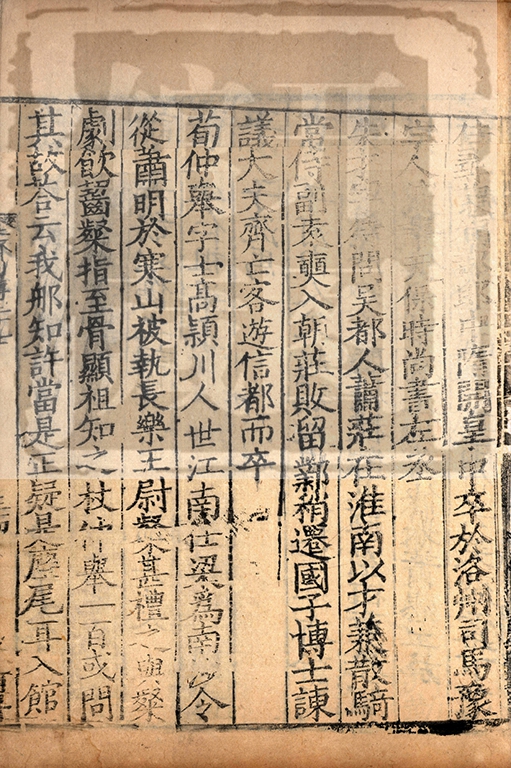 中隋開皇中卒於洛州司馬豫
保時尚書左丞
待問吳都人蕭莊在淮南以才兼散騎
常侍副袁奭入朝莊敗留鄴稍遷國子博士諫
議大夫齊亡客遊信都而卒
荀仲舉字士高潁川人世江南仕梁爲南沙令
從蕭明於寒山被執長樂王尉粲甚禮之與粲
劇飲齧粲指至骨顯祖知之杖仲舉一百或問
其故荅云我那知許當是正疑是麈尾耳入館